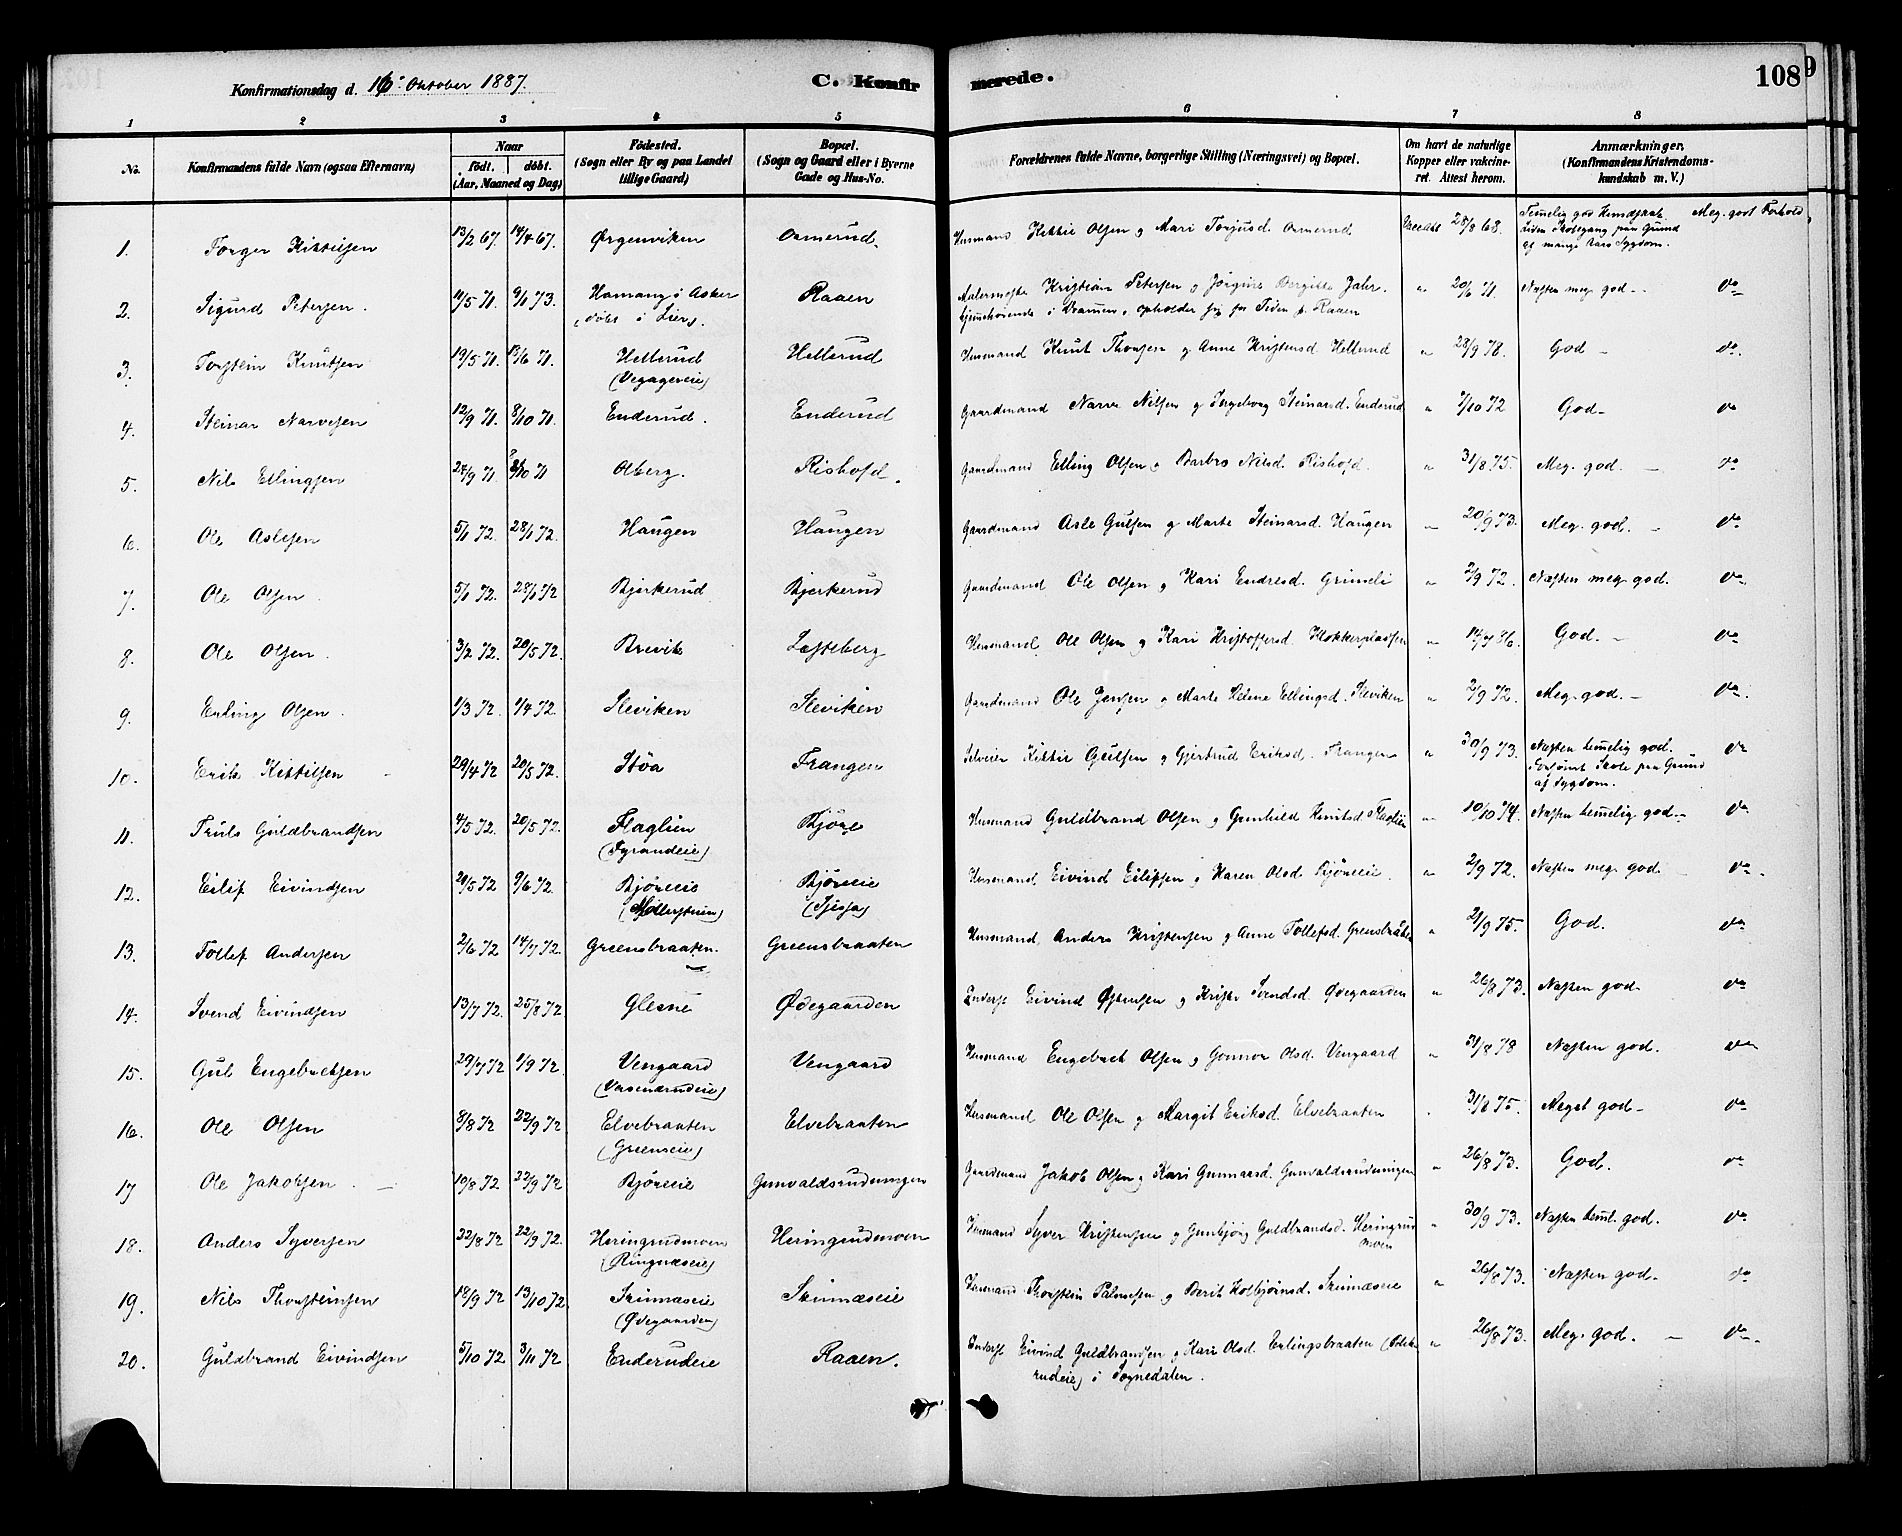 Konfirmationsdag d. 16de Oktober 1887.
C. Konfirmerede.
108
1 2 3 4 5 6 7 8
No.
Konfirmandens fulde Navn (ogsaa Efternavn)
Naar
født. døbt.
(Aar, Maaned og Dag)
Fødested.
(Sogn eller By og paa Landet
tillige Gaard)
Bopæl.
(Sogn og Gaard eller i Byerne
Gade og Hus-No.
Forældrenes fulde Navne, borgerlige Stilling (Næringsvei) og Bopæl.
Om havt de naturlige
Kopper eller vakcine-
ret. Attest herom.
Anmærkninger.
(Konfirmandens Kristendoms-
kundskab m. V.)
1. Torger Kittilsen 13/2 67. 14/4 67. Ørgenviken Ormerud. Husmand Kittil Olsen og Mari Torjusd. Ormerud 28/8 68. Temmelig god Kundskab. Meg. godt Forhold
Liden Skolegang paa Grund
af mange Aars Sygdom.
2. Sigurd Petersen. 11/5 71. 9/1 73. Hamang i Asker Raaen Malermester Kristian Petersen og Jørgine Bergitte Jahr. " 20/6 71. Næsten meg. god. do
(døbt i Lier). hjemmehørende i Drammen, opholder sig for Tiden p. Raaen
3. Torstein Knutsen 19/5 71. 18/6 71. Hellerud Hellerud Husmand Knut Thorsen og Anne Kristensd. Hellerud " 28/9 78. God - do.
(Vegagereie)
4. Steinar Narvesen 12/9 71. 8/10 71. Enderud. Enderud Gaardmand Narve Nilsen og Ingeborg Steinarsd. Enderud " 7/10 72 God- do
5. Nils Ellingsen 27/9 71 /10 71 Olberg. Rishofd. Gaardmand Elling Olsen og Barbro Nilsd. Rishofd. " 31/8 75. Meg. god. - do
6. Ole Aslesen 5/1 72. 28/1 72. Haugen Haugen Gaardmand Asle Gulsen og Marte Steinarsd. Haugen " 20/9 73. Meg. god. - do
7. Ole Olsen. 5/1 72. 28/1 72 Bjerkerud Bjerkerud Gaardmand Ole Olsen og Kari Endresd. Grimeli " 2/9 72. Næsten meg. god. do
8. Ole Olsen. 3/2 72. 20/5 72. Brevik Lesteberg Husmand Ole Olsen og Kari Kristoffersd. Klokkerplassen " 14/7 86. God. - do
9. Erling Olsen. 1/3 72. 1/4 72. Sleviken Sleviken Gaardmand Ole Jensen og Marte Helene Ellingsd. Sleviken " 2/9 72. Meg. god. - do.
10. Erik Kittilsen 29/4 72 20/5 72. Støa Frangen Selveier Kittil Gulsen og Gjertrud Eriksd. Frangen " 30/9 73. Næsten temmelig god. do
Forsømt Skole paa Grund
af Sygdom.
11. Truls Guldbrandsen 4/5 72. 20/5 72. Flaglien Bjøre Husmand Guldbrand Olsen og Gunhild Knutsd. Flaglien " 10/10 74. Næsten temmelig god. - do
(Fyrandeie)
12. Eilif Eivindsen 20/5 72 9/6 72. Bjøreeie Bjøreeie Husmand Eivind Eilifsen og Karen Olsd. Bjøreeie. " 2/9 72. Næsten meg. god. do.
13. Tollef Andersen 2/6 72 14/7 72 Greensbraaten. Greensbraaten Husmand Anders Kristensen og Anne Tollefsd. Grensbraaten " 21/9 75. God. do
14. Svend Eivindsen 13/7 72. 25/8 72 Glesne Ødegaarden Inderst Eivind Østensen og Kristi Svendsd. Ødegaarden " 26/8 73. Næsten god. do
15. Gul Engebretsen 29/7 72 1/9 72. Vengaard Vengaard Husmand Engebret Olsen og Gonnor Olsd. Vengaard " 31/8 78 Næsten god. do
(Vasendrudeie)
16. Ole Olsen 8/8 72 22/9 72 Elvebraaten Elvebraaten Husmand Ole Olsen og Margit Eriksd. Elvebraaten 31/8 75. Meget god- do
(Greenseie)
17 Ole Jakobsen. 10/8 72 22/9 72 Bjøreeie Gunvaldsrudeningen Gaardmand Jakob Olsen og Kari Gunnarsd. Gunvaldsrudeningen " 26/8 73. God. do
18. Anders Syversen 22/8 72 22/9 72. Heringrudmoen Heringrudmoen Husmand Syver Kristensen og Gunbjør Guldbrandsd. Heringrud " 30/9 73. Næsten teml. god. do
(Ringnæseie) moen
19. Nils Thorsteinsen 18/9 72 13/10 72 Skinnæseie Skinnæseie Husmand Thorstein Palmesen og Berit Kolbjørnsd. Skinnæseie " 26/8 73. Næsten god. do
(Ødegaarden)
20. Guldbrand Eivindsen 5/10 72 3/11 72 Enderudeie Raaen. Inderst Eivind Guldbrandsen og Kari Olsd. Erlingsbraaten " 26/8 73. Meg. god. - do.
rudeie) i Sognedalen.